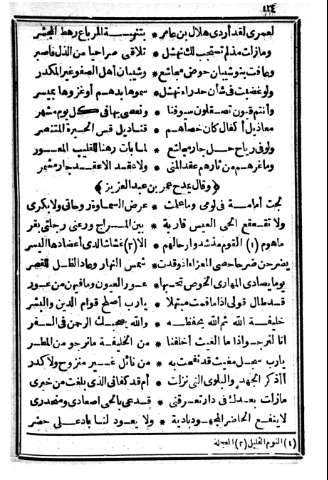 ١٢٤
لعمرى لقد أردى هلال بن عامر * بتنوسة المرباع رهط المجشر
ومازلت مذلم تستجب لك نهشل * تلاقى صراحيا من الذل فاصبر
وعافت بنو شيبان حوض مجاشع * وشيبان أهل الصفو غير المكدر
ولو غضبت فى شأن حدراء نهشل * سموها بدهم أو غزوها بميسر
وأنتم قيون تصقلون سيوفنا * ونعصى بها فى كل يوم مشهر
معاذيل أكفال كأن خصاهم * قناديل قس الحيرة المتنصر
ولو فى رياح حل جار مجاشع * لما بات رهنا للقليب المعور
وما غرهم من ثارهم عقد المنى * ولا عقد الا عقد جار مشمر
﴿ وقال يمدح عمر بن عبد العزيز ﴾
لجت أمامة فى لومى وما علمت * عرض السماوة روحاتى ولا بكرى
ولا تقعقع ألحى العيس قاربة * بين المراج ورعنى رجلتى بقر
ما هوم (١) القوم مذ شدوا رحالهم * الا (٢) غشاشا لدى أعضادها اليسر
يضرحن ضرحا حصى المعزاء اذ وقدت * شمس النهار وعاد الظل للقصر
يوما يصادى المهارى الخوص تحسبها * عور العيون وما فيهن من عور
قد طال قولى اذا ما قمت مبتهلا * يا رب أصلح قوام الدين والبشر
خليفة الله ثم الله يحفظه * والله يصحبك الرحمن فى السفر
انا لنرجو اذا ما الغيث أخلفنا * من الخليفة ما نرجو من المطر
يا رب سجل مغيث قد نفحت به * من نائل غير منزوح ولا كدر
أأذكر الجهد والبلوى التى نزلت * أم قد كفانى الذى بلغت من خبرى
مازلت بعدك فى دار تعرقنى * قد عى بالحى اصعادى ومنحدرى
لا ينفع الحاضر المجهود بادية * ولا يعود لنا باد على حضر
(١) النوم القليل (٢) العجلة